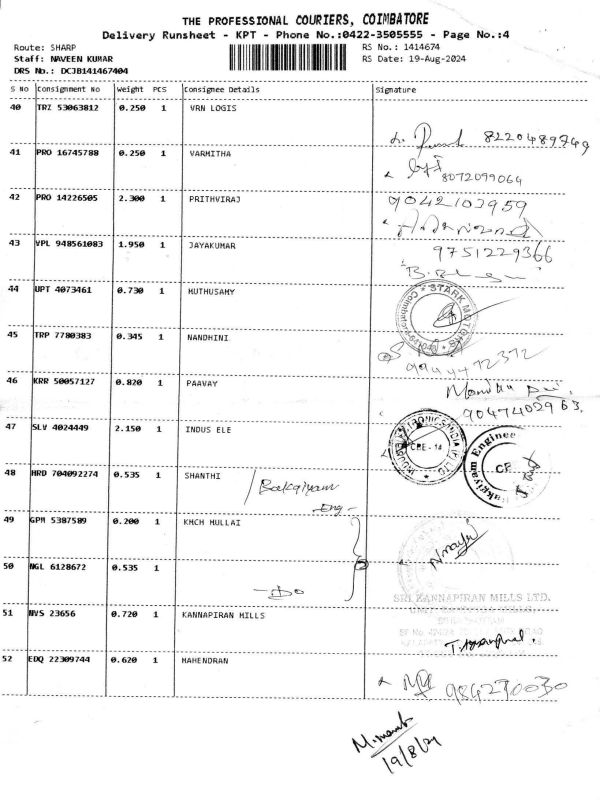 THE PROFESSIONAL COURIERS, COIMBATORE
Delivery Runsheet - KPT - Phone No.:0422-3505555 - Page No.:4
Route: SHARP
RS No.: 1414674
Staff: NAVEEN KUMAR
RS Date: 19-Aug-2024
DRS No.: DCJB141467404
S No Consignment No Weight PCS Consignee Details Signature
40 TRZ 53063812 0.250 1 VRN LOGIS
8220489749
41 PRO 16745788 0.250 1 VARMITHA
8072099064
42 PRO 14226505 2.300 1 PRITHVIRAJ
9042103959
43 VPL 948561083 1.950 1 JAYAKUMAR
9751229366
44 UPT 4073461 0.730 1 MUTHUSAMY
STARK MOTORS
Coimbatore
45 TRP 7780383 0.345 1 NANDHINI
9944472372
46 KRR 50057127 0.820 1 PAAVAY
9047402963.
47 SLV 4024449 2.150 1 INDUS ELE
CBE - 14
48 HRD 704092274 0.535 1 SHANTHI
Bakgiyam
Eng -
49 GPM 5387589 0.200 1 KMCH MULLAI
50 NGL 6128672 0.535 1
SRI KANNAPIRAN MILLS LTD.
51 NVS 23656 0.720 1 KANNAPIRAN MILLS
52 EDQ 22309744 0.620 1 MAHENDRAN
984230030
19/8/24